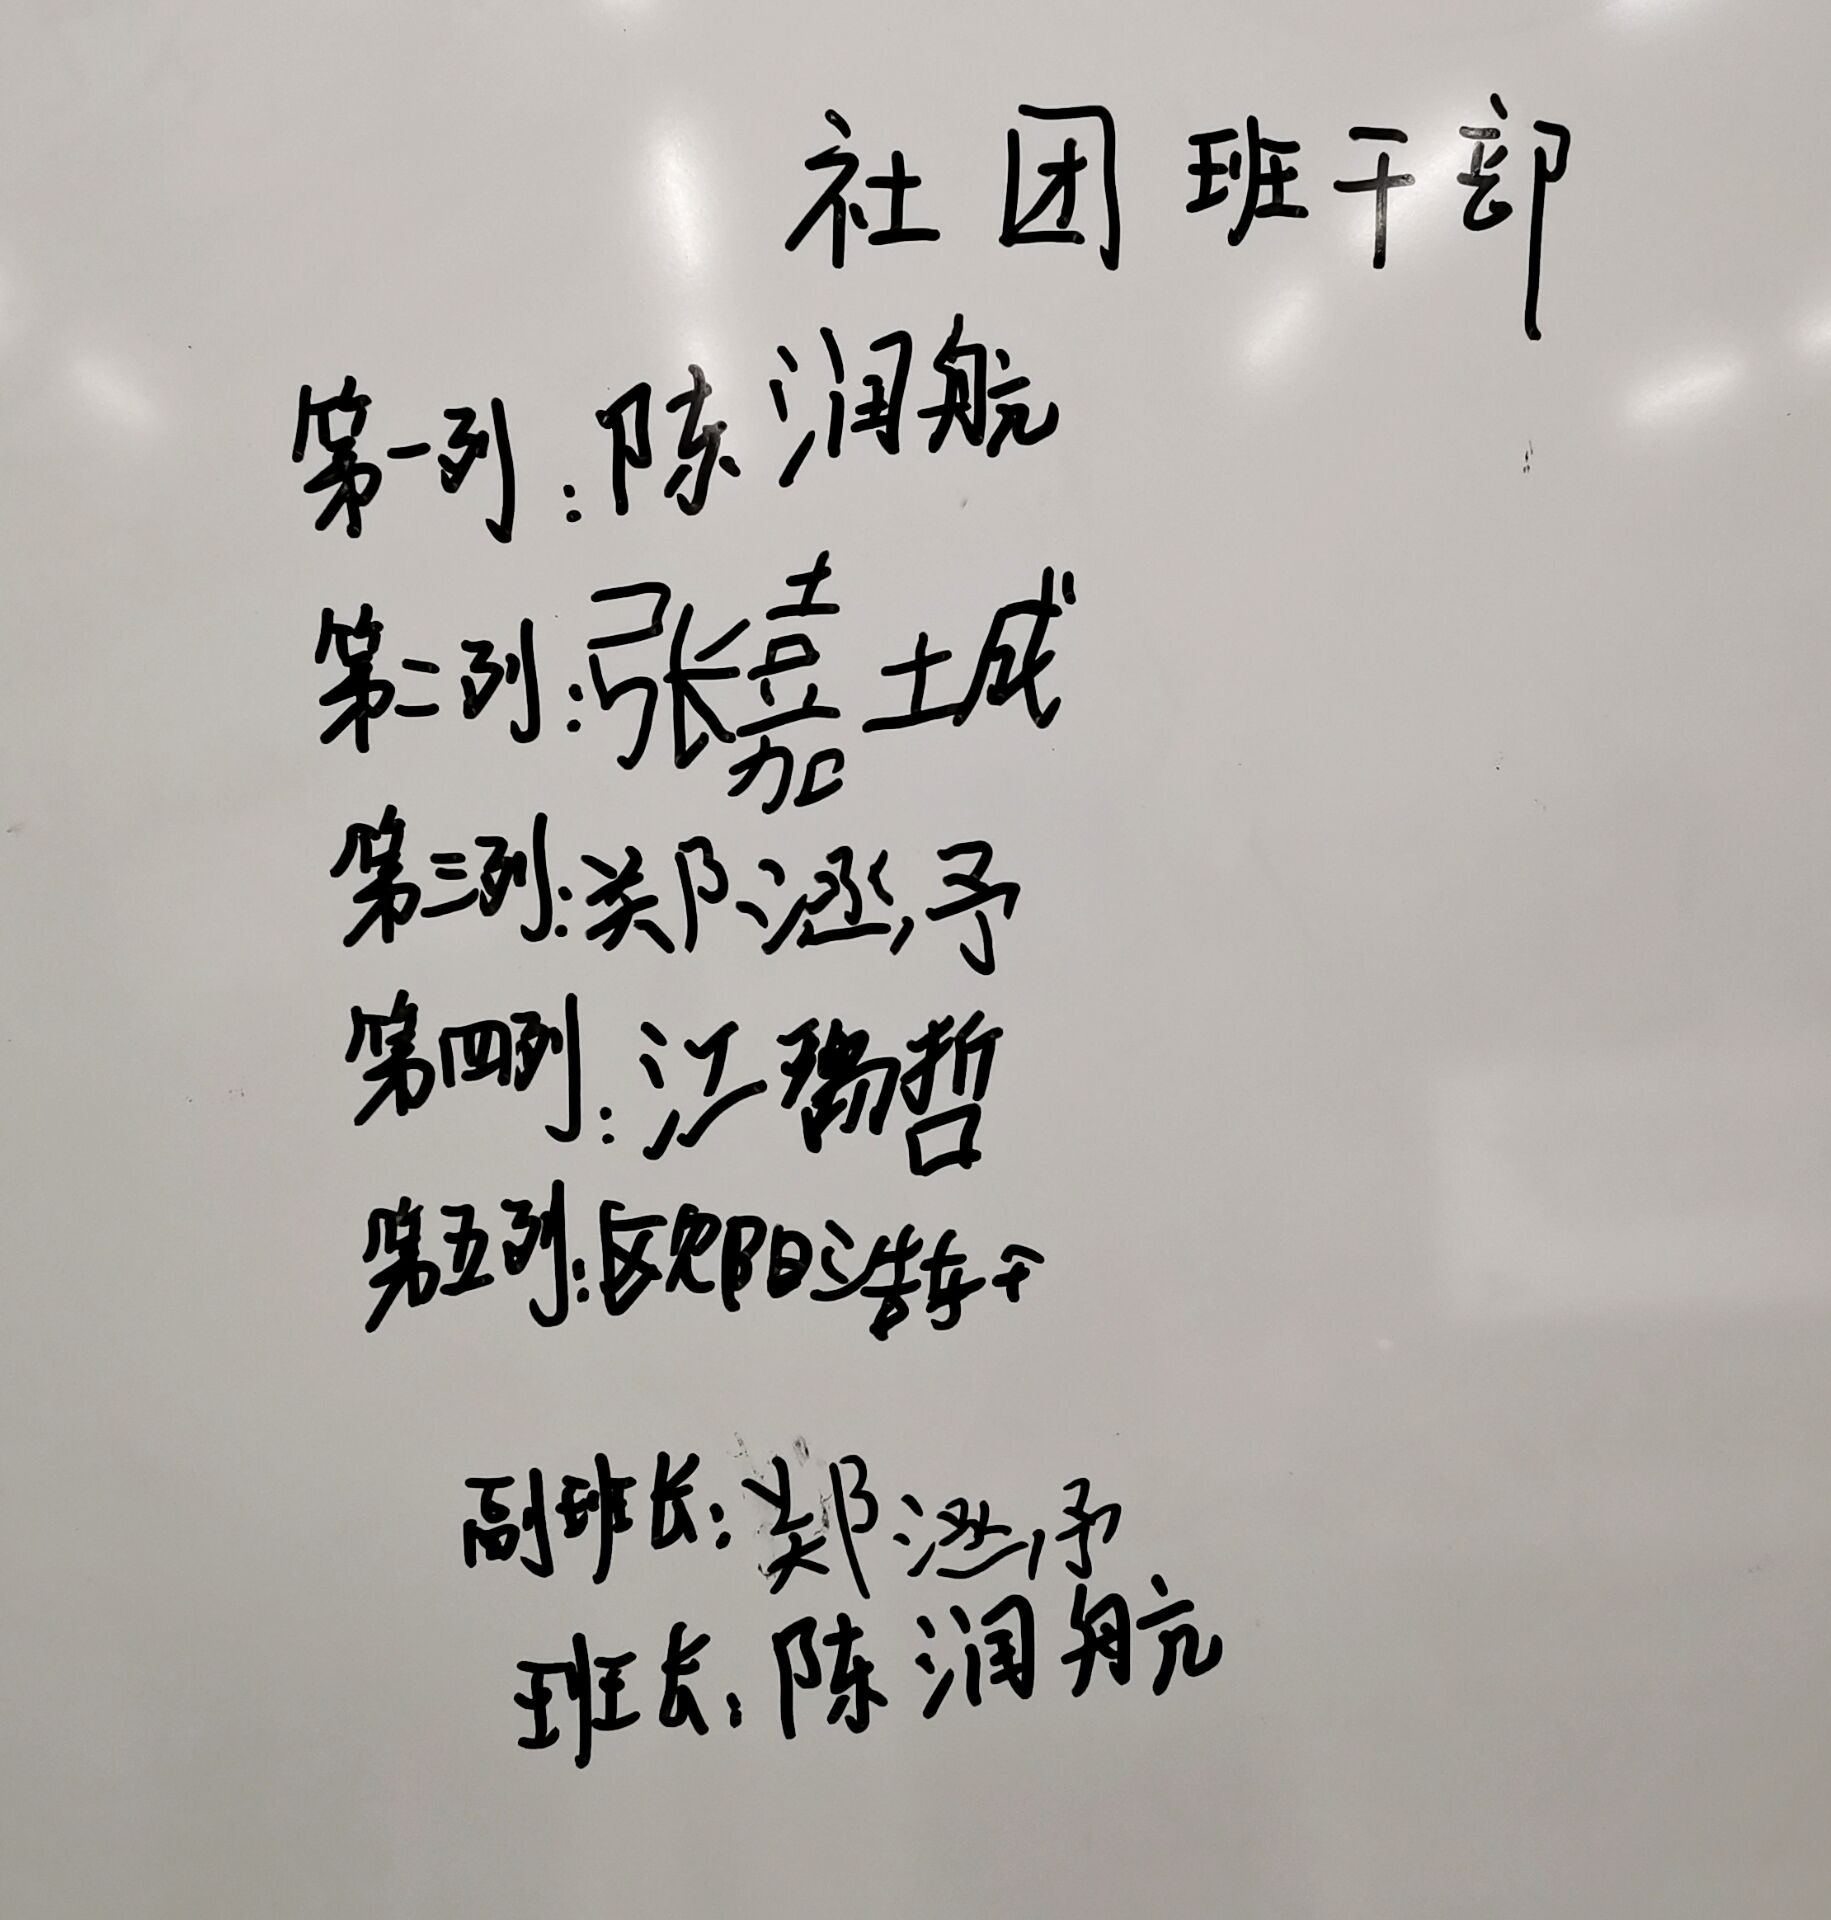 社团班干部
第一列:陈润航
第二列:张嘉城
第三列:郑涵予
第四列:江瑞哲
第五列:欧阳浩
副班长:郑涵予
班长:陈润航